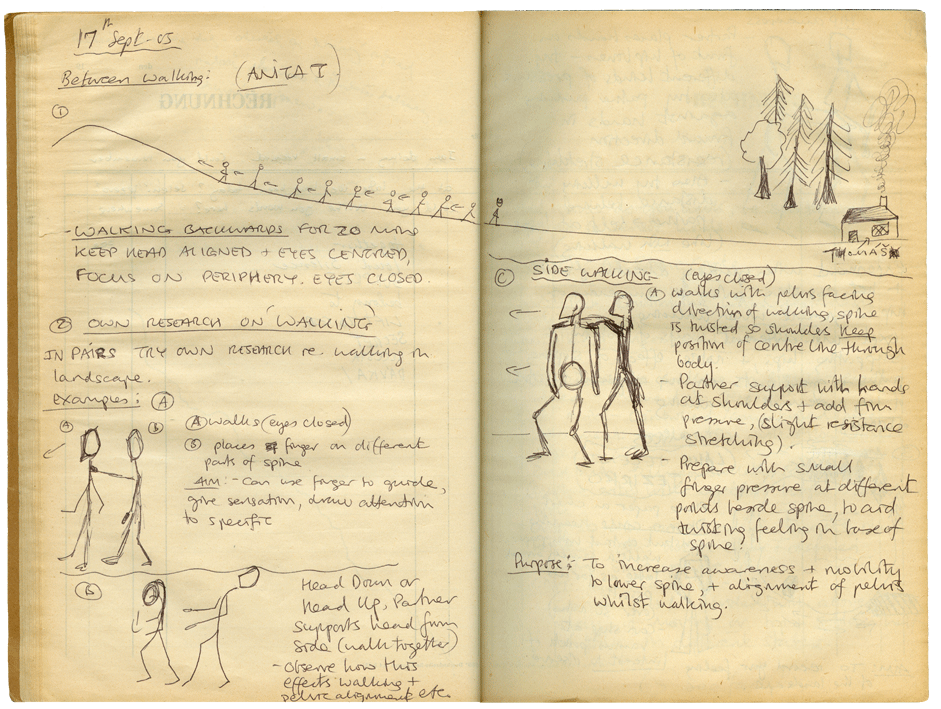 17th Sept-05
Between Walking: (ANITA T)
①
- WALKING BACKWARDS FOR 20 MINS
KEEP HEAD ALIGNED + EYES CENTRED,
FOCUS ON PERIPHERY. EYES CLOSED.
② OWN RESEARCH ON 'WALKING'
IN PAIRS TRY OWN RESEARCH re. walking in
landscape.
examples: Ⓐ
Ⓐ Ⓑ
Ⓐ walks (eyes closed)
Ⓑ places finger on different
parts of spine
AIM:- Can use finger to guide,
give sensation, draw attention
to specific
Ⓑ
Head Down or
Head Up, Partner
supports head from
side (walk together)
- Observe how this
effects walking +
pelvic alignment etc.
RECHNUNG
THOMÁŠ
Ⓒ SIDE WALKING (eyes closed)
Ⓐ walks with pelvis facing
direction of walking, spine
is twisted so shoulders keep
position of centre line through
body.
- Partner support with hands
at shoulders + add firm
pressure, (slight resistance
stretching).
- Prepare with small
finger pressure at different
points beside spine, to aid
twisting feeling in base of
spine.
Purpose:- To increase awareness + mobility
to lower spine, + alignment of pelvis
whilst walking.